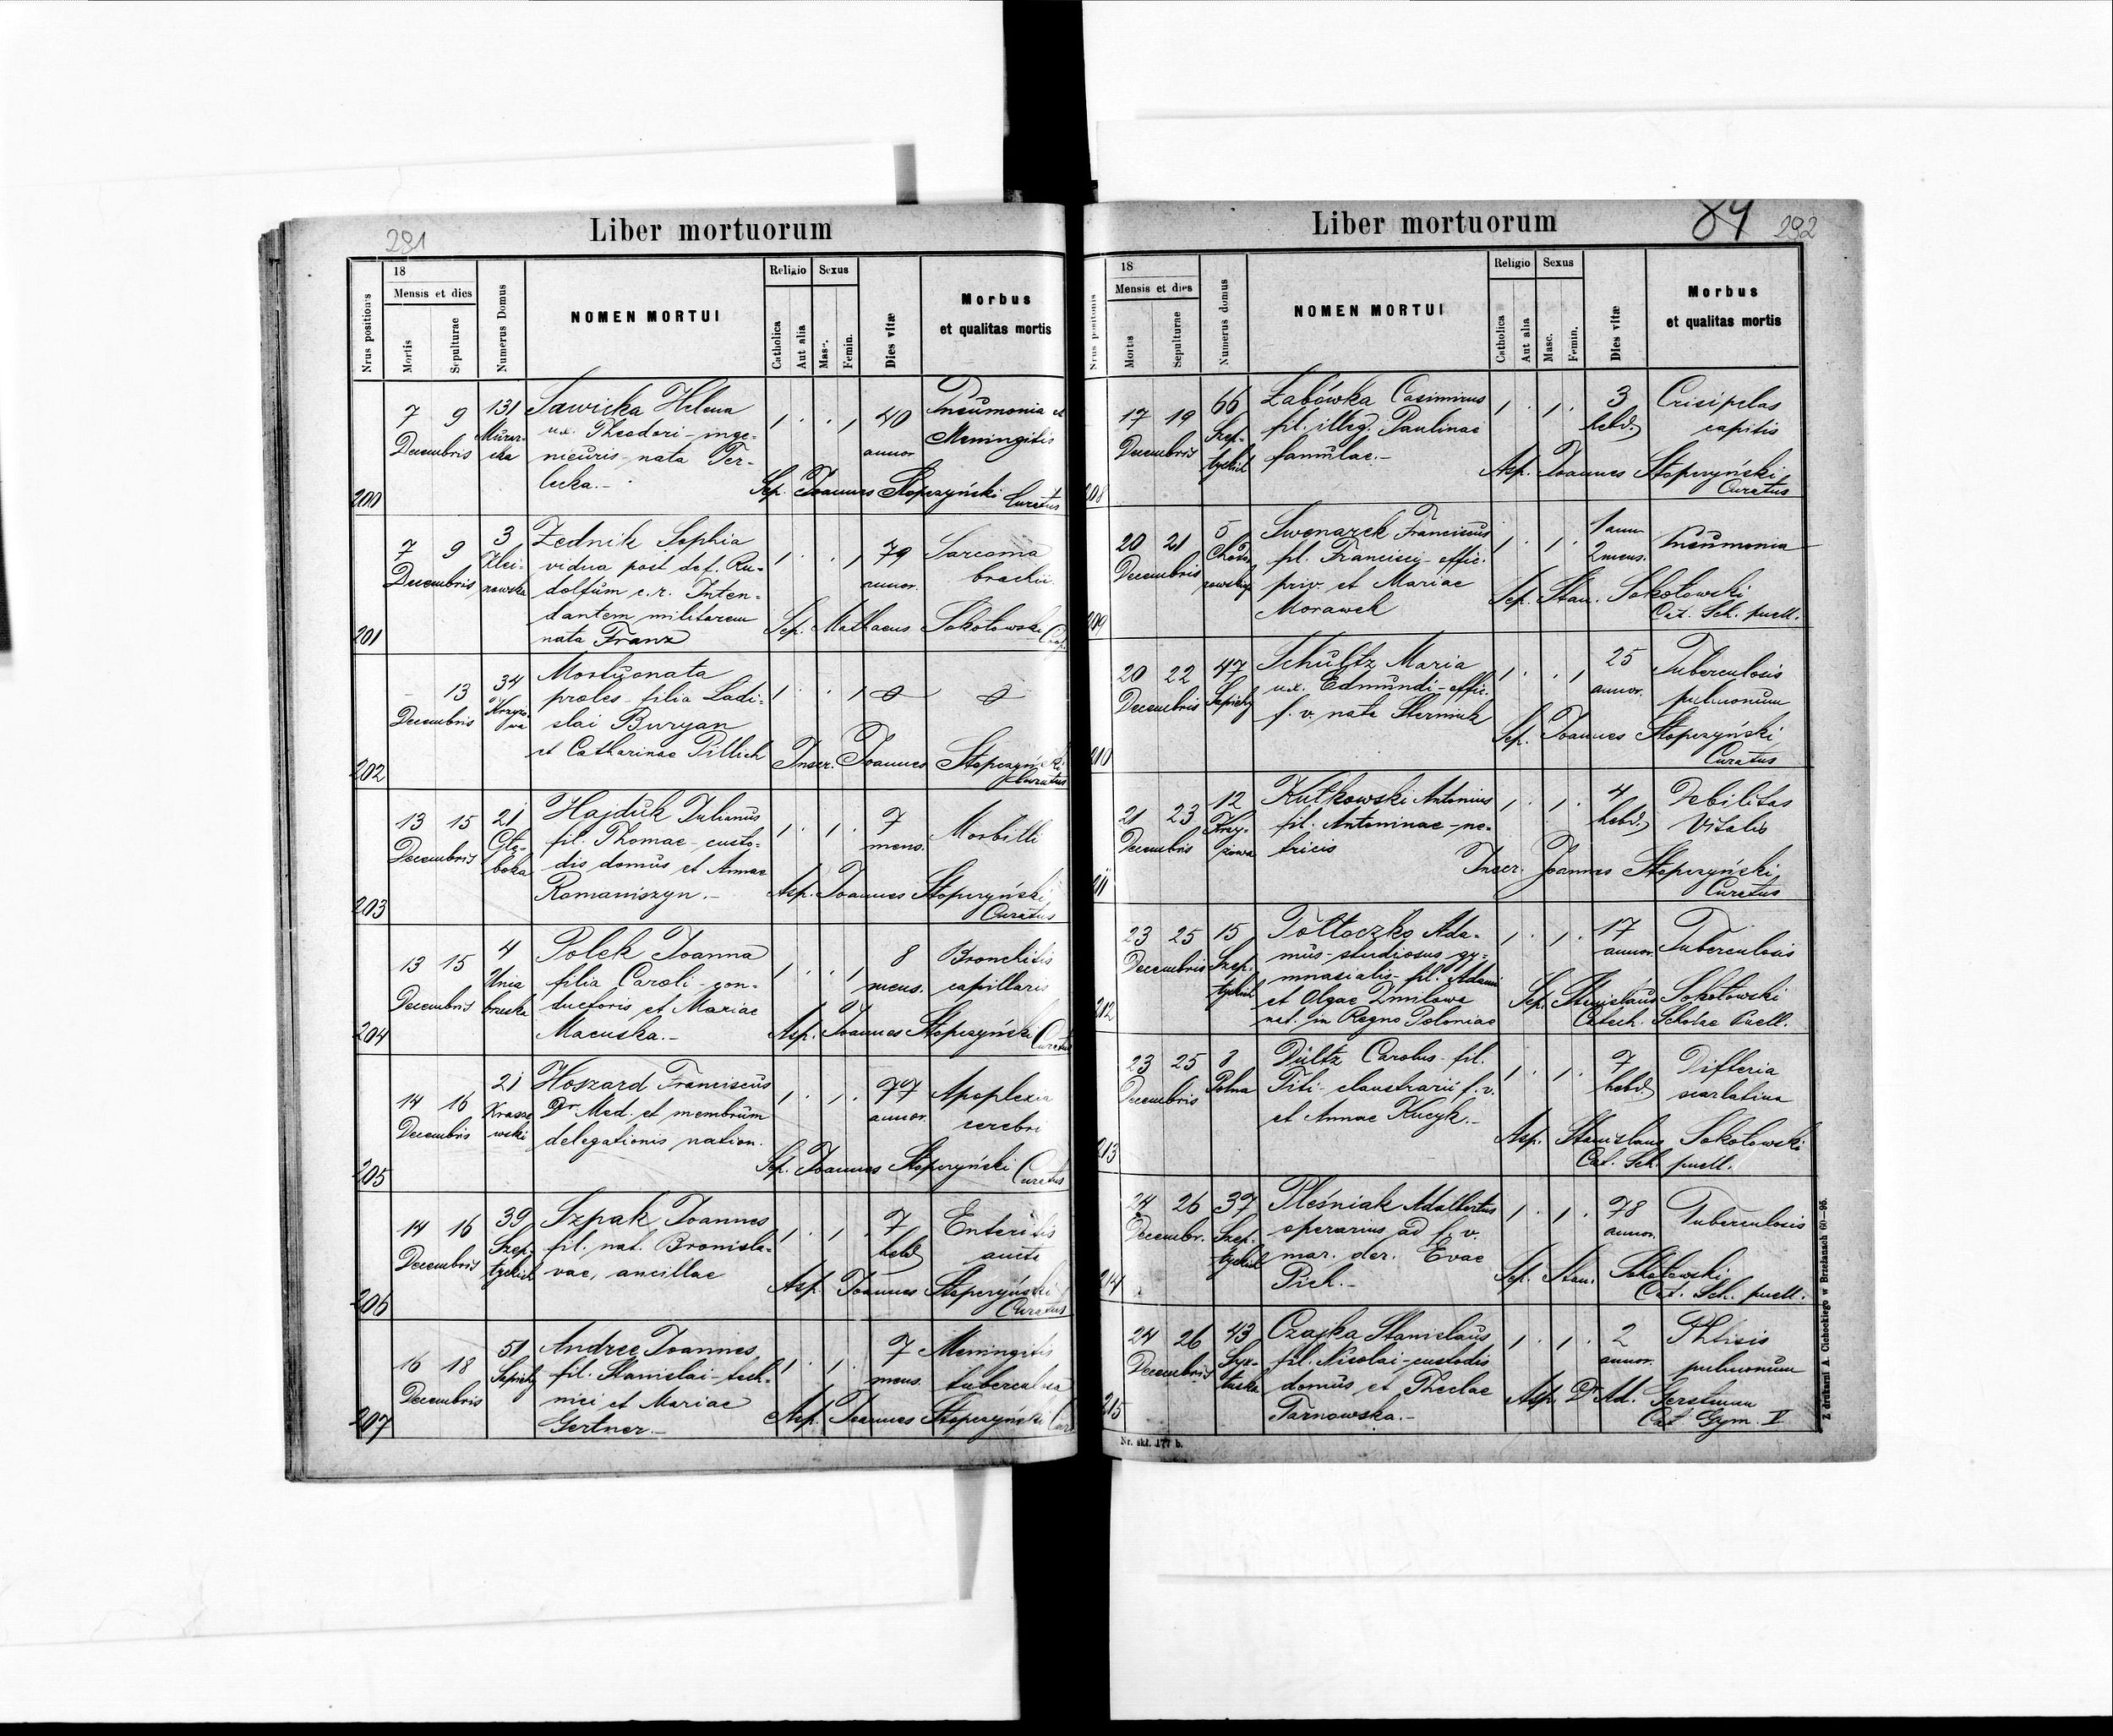 291
Liber mortuorum
Nrus positionis
18
Mensis et dies
Mortis
Sepulturae
Numerus Domus
NOMEN MORTUI
Religio
Catholica
Aut alia
Sexus
Masc.
Femin.
Dies vitæ
Morbus
et qualitas mortis
200
7 9
Decembris
131
Murar-
ska
Sawicka Helena
ux. Theodori - inge-
nieuris - nata Ter-
lecka. -
40
annor
Pneumonia et
Meningitis
Sep. Joannes Stopczyński Curatus
201
7 9
Decembris
3
Klei-
nowska
Zednik Sophia
vidua post def. Ru-
dolfum c. r. Inten-
dantem militarem
nata Franz
79
annor.
Sarcoma
brachii
Sep. Mathaeus Sokołowski
202
13
Decembris
34
Krzyżo-
wa
Mortuonata
proles - filia Ladi-
slai Buryan
et Catharinae Pillich
Inscr. Joannes Stopczyński
Curatus
203
13 15
Decembris
21
Głę-
boka
Hajduk Julianus
fil. Thomae - custo-
dis domus et Annae
Romaniszyn. -
7
mens.
Morbilli
Asp. Joannes Stopczyński
Curatus
204
13 15
Decembris
4
Unia
brzeska
Polek Joanna
filia Caroli - con-
ductoris et Mariae
Macuska. -
8
mens.
Bronchitis
capillaris
Asp. Joannes Stopczyński Curatus
205
14 16
Decembris
21
Krasze
wski
Hoszard Franciscus
Dr Med. et membrum
delegationis nation.
77
annor.
Apoplexia
cerebri
Sep. Joannes Stopczyński Curatus
206
14 16
Decembris
39
Szep-
tyckich
Szpak Joannes
fil. nat. Bronisla-
vae, ancillae
7
hebd.
Enteritis
acuta
Asp. Joannes Stopczyński
Curatus
207
16 18
Decembris
51
Sapiehy
Andree Joannes
fil. Stanislai - tech-
nici et Mariae
Gertner. -
7
mens.
Meningitis
tuberculosa
Asp. Joannes Stopczyński Cur
84
292
Liber mortuorum
Nrus positonis
18
Mensis et dies
Mortis
Sepulturae
Numerus domus
NOMEN MORTUI
Religio
Catholica
Aut alia
Sexus
Masc.
Femin.
Dies vitæ
Morbus
et qualitas mortis
208
17 19
Decembris
66
Szep-
tyckich
Żabówka Casimirus
fil. illeg. Paulinae
famulae. -
3
hebd.
Erisipelas
capitis
Asp. Joannes Stopczyński
Curatus
209
20 21
Decembris
5
Chodo-
rowskiego
Swenarek Franciscus
fil. Francisci - offic.
priv. et Mariae
Morawek
1 ann
2 mens.
Pneumonia
Sep. Stan. Sokołowski
Cat. Sch. puell.
210
20 22
Decembris
47
Sapiehy
Schultz Maria
ux. Edmundi - offic.
f. v. nata Sterniuk
25
annor.
Tuberculosis
pulmonum
Sep. Joannes Stopczyński
Curatus
211
21 23
Decembris
12
Krzy-
żowa
Kutkowski Antonius
fil. Antoninae - ne-
tricis
4
hebd.
Debilitas
Vitalis
Inscr. Joannes Stopczyński
Curatus
212
23 25
Decembris
15
Szep-
tyckich
Tołłoczko Ada-
mus - studiosus gy-
mnasialis - fil. Adami
et Olgae Zmilowa
nat. in Regno Poloniae
17
annor.
Tuberculosis
Sep. Stanislaus Sokołowski
Catech. Scholae Puell.
213
23 25
Decembris
8
Polna
Dültz Carolus - fil.
Titi - claustrarii f. v.
et Annae Kucyk. -
7
hebd.
Difteria
scarlatina
Asp. Stanislaus Sokołowski
Cat. Sch. puell.
214
24 26
Decembr.
37
Szep-
tyckich
Pleśniak Adalbertus
operarius ad f. v.
mar. der. Evae
Pich. -
78
annor.
Tuberculosis
Sep. Stan. Sokołowski
Cat. Sch. puell.
215
24 26
Decembris
43
Syx-
tuska
Czajka Stanislaus
fil. Nicolai - custodis
domus et Theclae
Tarnowska. -
2
annor.
Phtisis
pulmonum
Asp. Dr Ad. Gerstman
Cat. Gym. V
Nr. skł. 177 b.
Z drukarni A. Cichockiego w Brzeżanach 60—95.